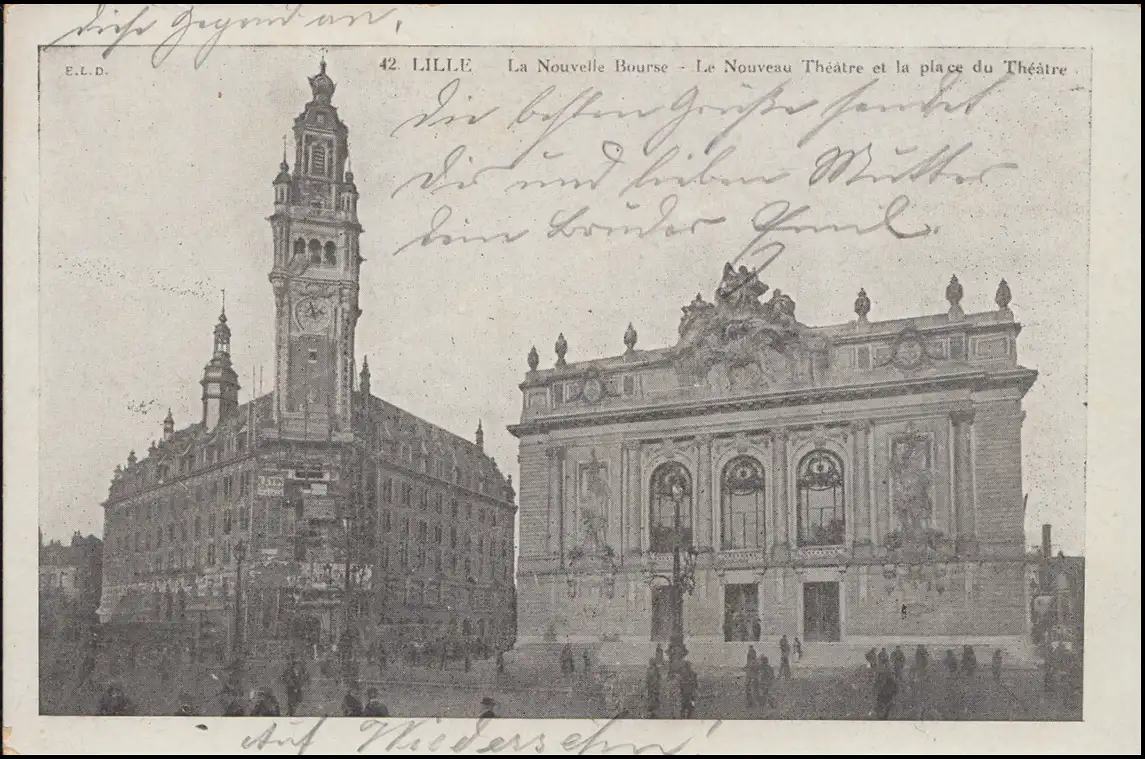 diese Gegend an.
E.L.D.
42. LILLE La Nouvelle Bourse - Le Nouveau Théâtre et la place du Théâtre
Die besten Grüße sendet
Dir und lieben Mutter
dein Bruder
Auf Wiedersehn!